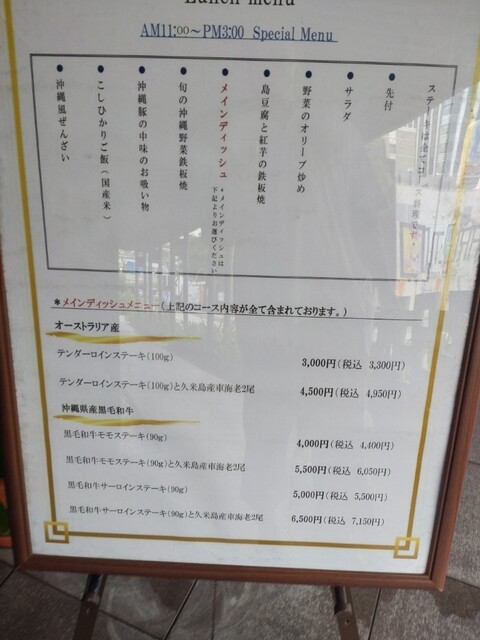 Lunch menu
AM11:00～PM3:00 Special Menu
ステーキは全てコース料理です。
●先付
●サラダ
●野菜のオリーブ炒め
●島豆腐と紅芋の鉄板焼
●メインディッシュ
*メインディッシュは
下記よりお選びください
●旬の沖縄野菜鉄板焼
●沖縄豚の中味のお吸い物
●こしひかりご飯(国産米)
●沖縄風ぜんざい
*メインディッシュメニュー(上記のコース内容が全て含まれております。)
オーストラリア産
テンダーロインステーキ(100g) 3,000円(税込 3,300円)
テンダーロインステーキ(100g)と久米島産車海老2尾 4,500円(税込 4,950円)
沖縄県産黒毛和牛
黒毛和牛モモステーキ(90g) 4,000円(税込 4,400円)
黒毛和牛モモステーキ(90g)と久米島産車海老2尾 5,500円(税込 6,050円)
黒毛和牛サーロインステーキ(90g) 5,000円(税込 5,500円)
黒毛和牛サーロインステーキ(90g)と久米島産車海老2尾 6,500円(税込 7,150円)